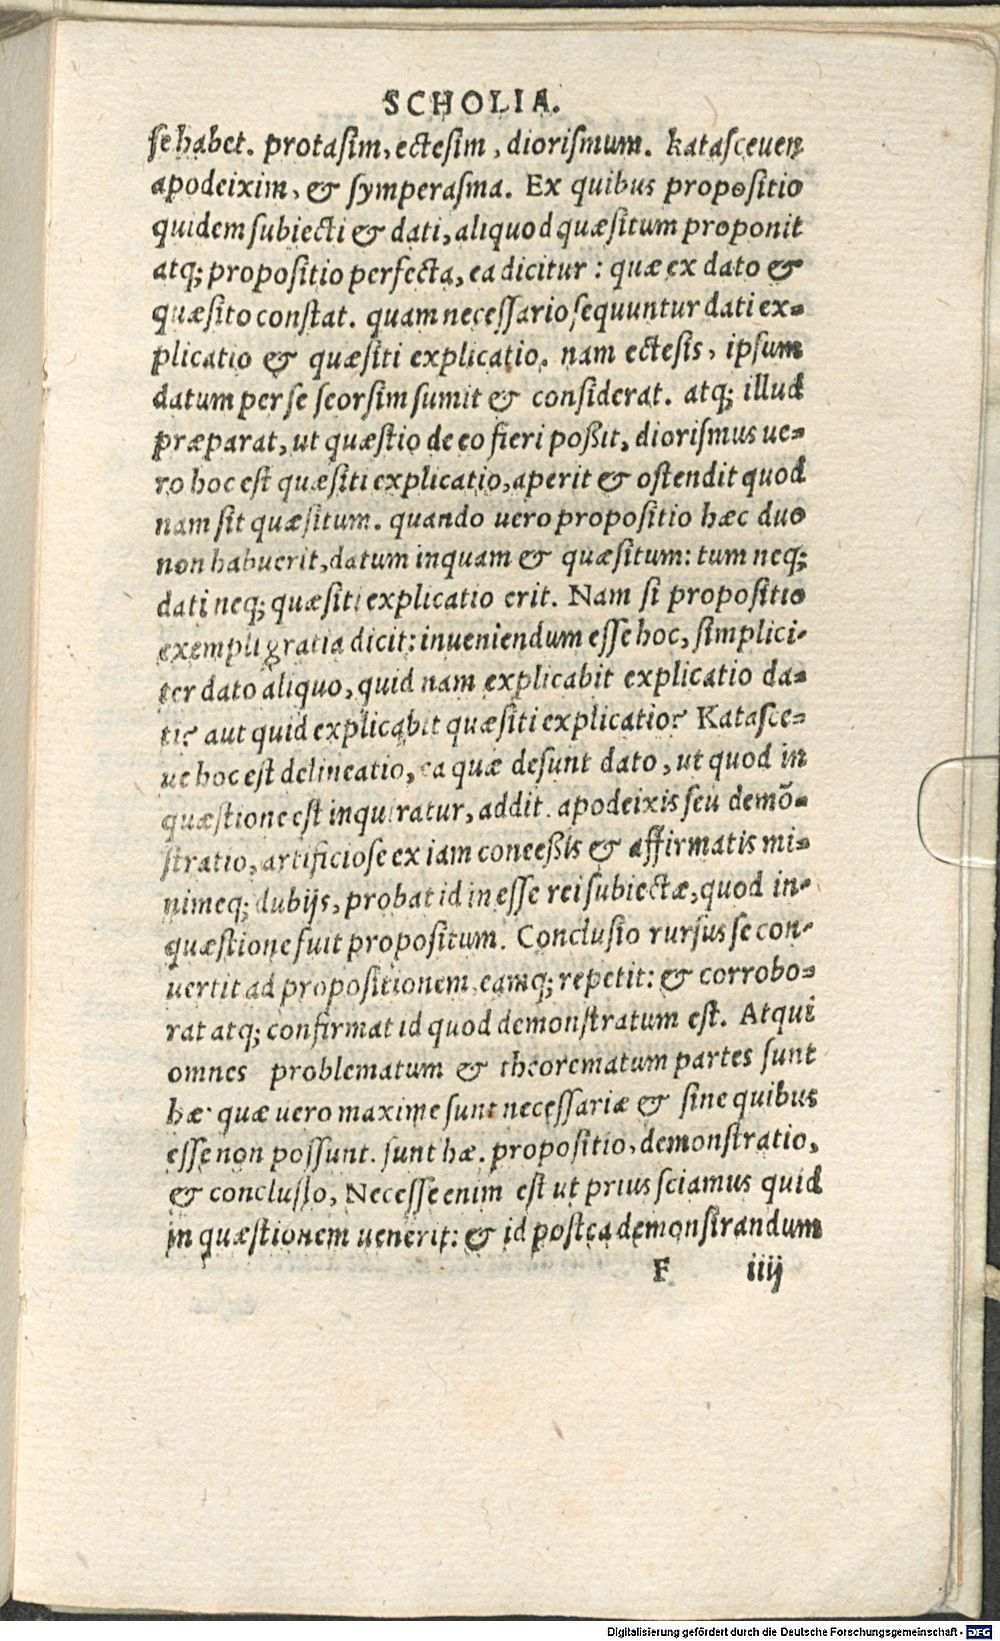 SCHOLIA.
se habet. protasim, ectesim, diorismum. katasceuen
apodeixim, & symperasma. Ex quibus propositio
quidem subiecti & dati, aliquod quæsitum proponit
atq; propositio perfecta, ea dicitur: quæ ex dato &
quæsito constat. quam necessario sequuntur dati ex-
plicatio & quæsiti explicatio. nam ectesis, ipsum
datum per se seorsim sumit & considerat. atq; illud
præparat, ut quæstio de eo fieri poßit, diorismus ue-
ro hoc est quæsiti explicatio, aperit & ostendit quod
nam sit quæsitum. quando uero propositio hæc duo
non habuerit, datum inquam & quæsitum: tum neq;
dati neq; quæsiti explicatio erit. Nam si propositio
exempli gratia dicit: inueniendum esse hoc, simplici-
ter dato aliquo, quid nam explicabit explicatio da-
ti? aut quid explicabit quæsiti explicatio? Katasce-
ue hoc est delineatio, ea quæ desunt dato, ut quod in
quæstione est inquiratur, addit. apodeixis seu demõ-
stratio, artificiose ex iam conceßis & affirmatis mi-
nimeq; dubijs, probat id inesse rei subiectæ, quod in-
quæstione fuit propositum. Conclusio rursus se con-
uertit ad propositionem, eamq; repetit: & corrobo-
rat atq; confirmat id quod demonstratum est. Atqui
omnes problematum & theorematum partes sunt
hæ. quæ uero maxime sunt necessariæ & sine quibus
esse non possunt. sunt hæ. propositio, demonstratio,
& conclusio, Necesse enim est ut prius sciamus quid
in quæstionem uenerit: & id postea demonstrandum
F iiij
Digitalisierung gefördert durch die Deutsche Forschungsgemeinschaft - DFG